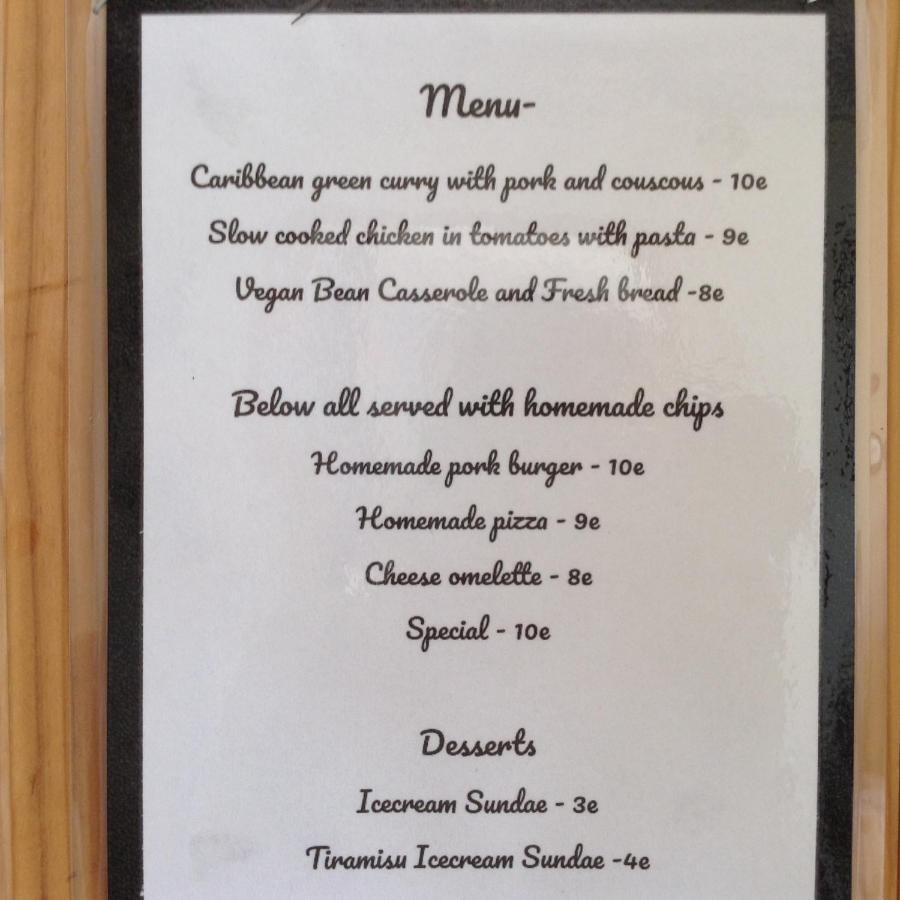 Menu-
Caribbean green curry with pork and couscous - 10e
Slow cooked chicken in tomatoes with pasta - 9e
Vegan Bean Casserole and Fresh bread -8e
Below all served with homemade chips
Homemade pork burger - 10e
Homemade pizza - 9e
Cheese omelette - 8e
Special - 10e
Desserts
Icecream Sundae - 3e
Tiramisu Icecream Sundae -4e